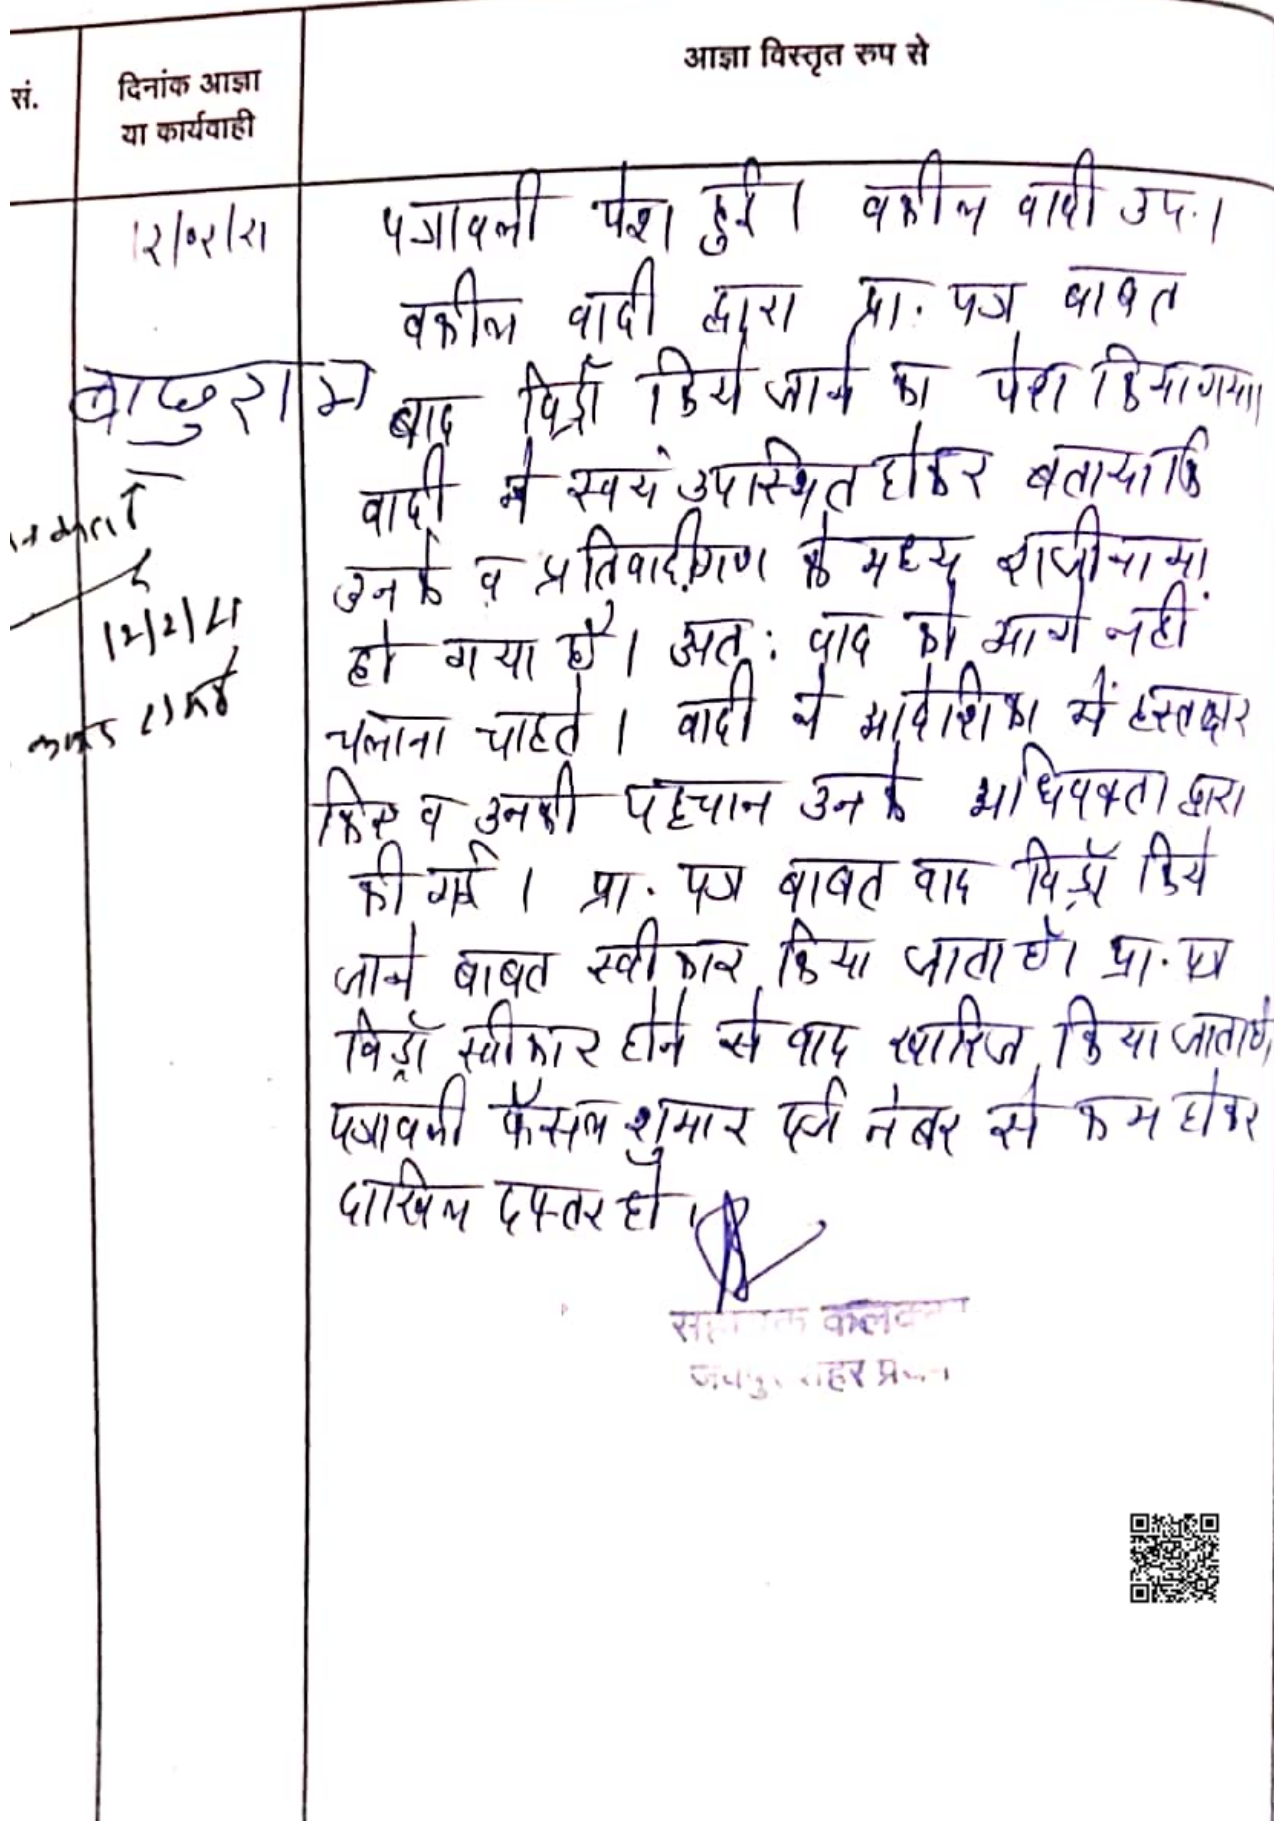 सं.
दिनांक आज्ञा
या कार्यवाही
आज्ञा विस्तृत रुप से
पत्रावली पेश हुई। वकील वादी उप.।
वकील वादी द्वारा प्रा. पत्र बाबत
वाद विड्रॉ किये जाने का पेश किया गया।
वादी ने स्वयं उपस्थित होकर बताया कि
उनके व प्रतिवादीगण के मध्य राजीनामा
हो गया है। अत: वाद को आगे नहीं
चलाना चाहते। वादी ने आदेशिका में हस्ताक्षर
किए व उनकी पहचान उनके अधिवक्ता द्वारा
की गई। प्रा. पत्र बाबत वाद विड्रॉ किये
जाने बाबत स्वीकार किया जाता है। प्रा. पत्र
विड्रॉ स्वीकार होने से वाद खारिज किया जाता है
पत्रावली फैसल शुमार दर्ज नंबर से कम होकर
दाखिल दफ्तर हो।
12/02/21
बाछुराम
12/2/21
कलक्टर
जयपुर शहर